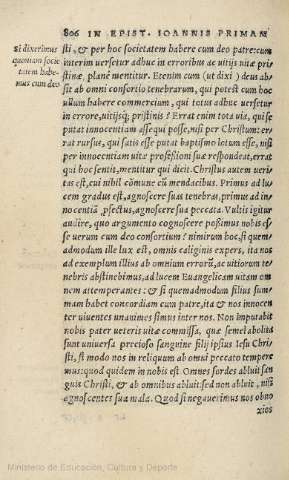 806 IN EPIST. IOANNIS PRIMAM
Si dixerimus
quoniam socie
tatem habe-
mus cum deo
sti, & per hoc societatem habere cum deo patre: cum
interim uersetur adhuc in erroribus ac uitijs uitæ pri
stinæ, planè mentitur. Etenim cum (ut dixi) deus ab
sit ab omni consortio tenebrarum, qui potest cum hoc
ullum habere commercium, qui totus adhuc uersetur
in errore, uitijsq; pristinis? Errat enim tota uia, qui se
putat innocentiam assequi posse, nisi per Christum: er
rat rursus, qui satis esse putat baptismo lotum esse, nisi
per innocentiam uitæ professioni suæ respondeat, errat
qui hoc sentit, mentitur qui dicit. Christus autem ueri
tas est, cui nihil cõmune cũ mendacibus. Primus ad lu
cem gradus est, agnoscere suas tenebras, primus ad in
nocentiã, ꝓfectus, agnoscere sua peccata. Vultis igitur
audire, quo argumento cognoscere possimus nobis es
se uerum cum deo consortium? nimirum hoc, si quem
admodum ille lux est, omnis caliginis expers, ita nos
ad exemplum illius ab omnium errorũ, ac uitiorum te
nebris abstinebimus, ad lucem Euangelicam uitam om
nem attemperantes: & si quemadmodum filius sum-
mam habet concordiam cum patre, ita & nos innocen
ter uiuentes unanimes simus inter nos. Non imputabit
nobis pater ueteris uitæ commissa, quæ semel aboleuit
sunt uniuersa precioso sanguine filij ipsius Iesu Chri
sti, si modo nos in reliquum ab omni peccato tempere
mus: quod quidem in nobis est. Omnes sordes abluit san
guis Christi, & ab omnibus abluit: sed non abluit, nisi
agnoscentes sua mala. Quod si negauerimus nos obno
xios
Ministerio de Educación, Cultura y Deporte